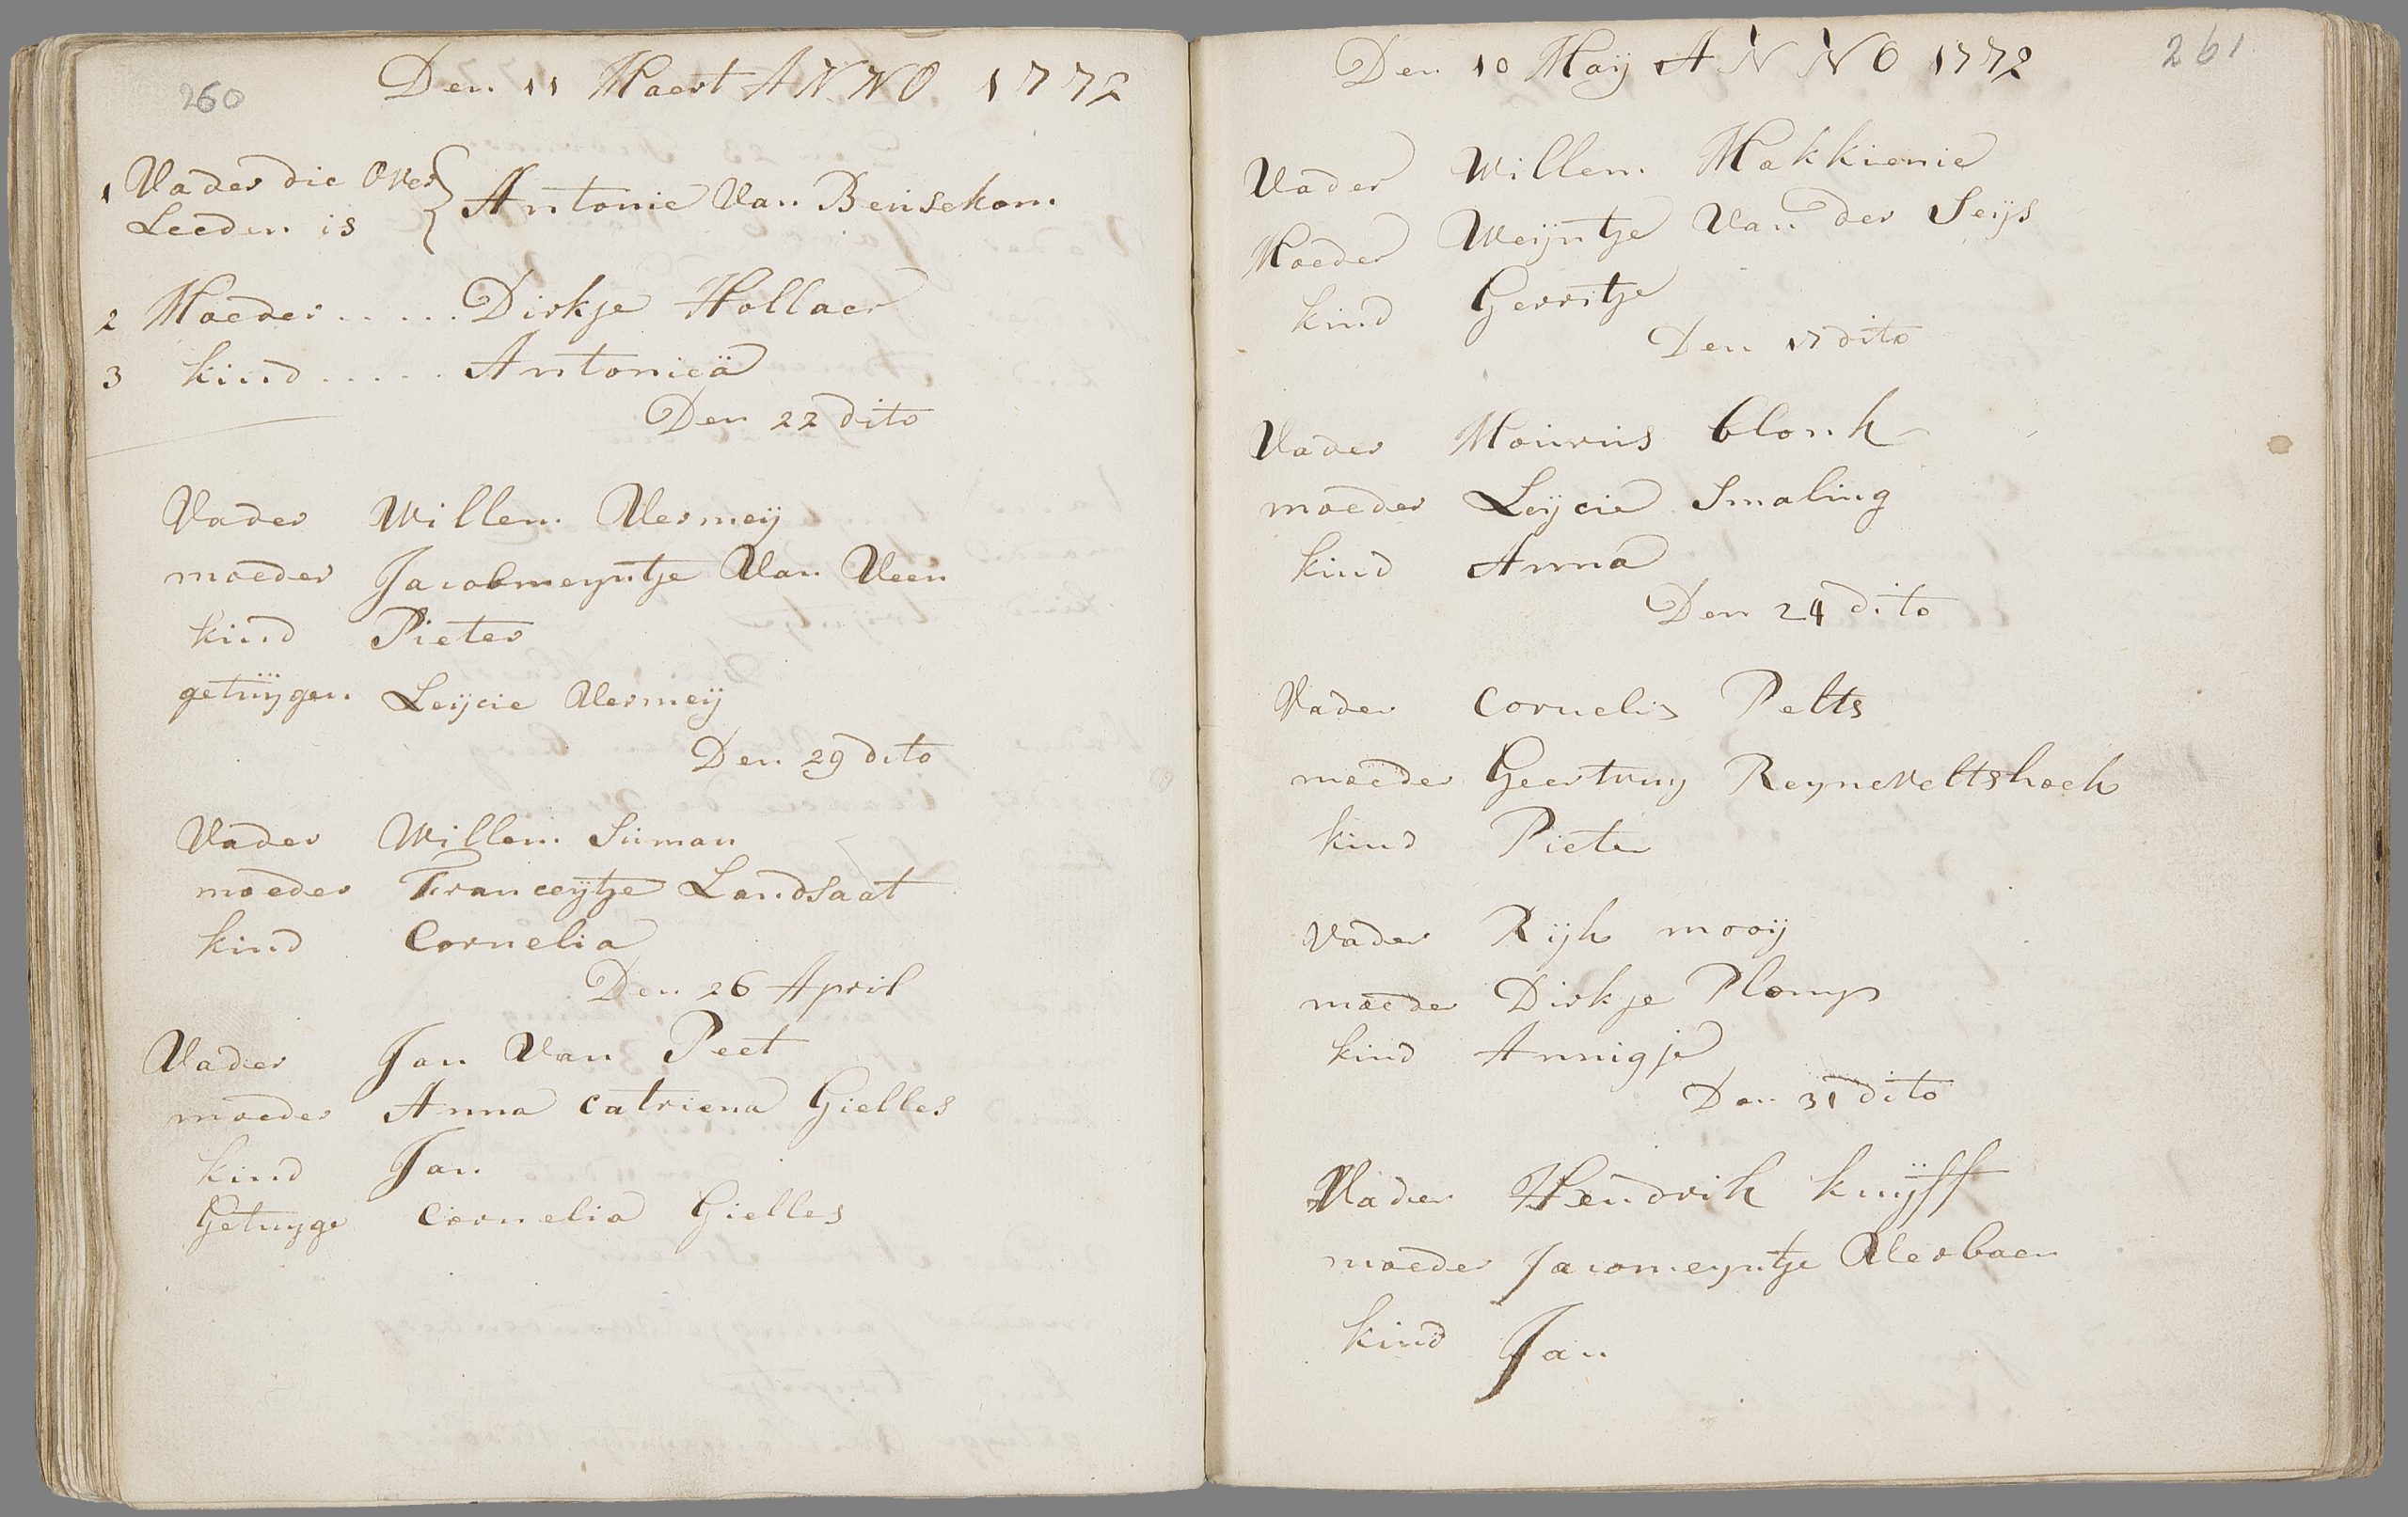 260
Den 11 Maert ANNO 1772
1 Vader die Over
Leeden is } Antonie Van Beusekom
2 Moeder ..... Dirkje Hollaer
3 kind ..... Antonieä
Den 22 dito
Vader Willem Vermeij
moeder Jacobmeyntje Van Veen
kind Pieter
getuijgen Leijcie Vermeij
Den 29 dito
Vader Willem Suman
moeder Franceijtje Landsaat
kind Cornelia
Den 26 April
Vader Jan Van Peet
moeder Anna Catriena Gielles
kind Jan
Getuyge Cornelia Gielles
261
Den 10 Maij ANNO 1772
Vader Willem Makkienie
Moeder Weijntje Van der Seijs
kind Gerritje
Den 17 dito
Vader Mourus blonk
moeder Leijcie Smaling
kind Anna
Den 24 dito
Vader Cornelis Pelts
moeder Geertruy Reyneveltshoek
kind Pieter
Vader Rijk mooij
moeder Dirkje Plomp
kind Annigje
Den 31 dito
Vader Hendrik kuijff
moeder Jacomeyntje Verbaen
kind Jan